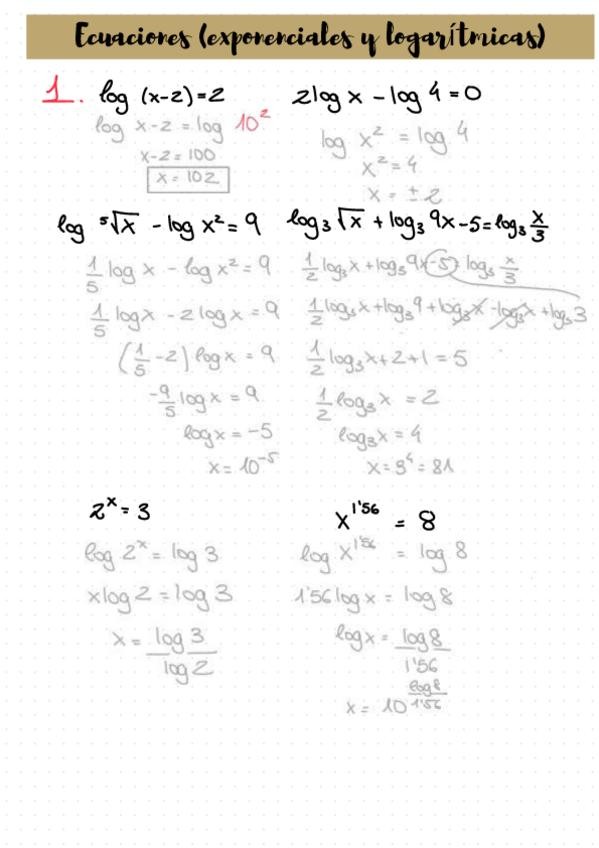 Ecuaciones (exponenciales y logarítmicas)
1. log (x-2)=2
log x-2 = log 10²
x-2 = 100
x = 102
2log x - log 4 = 0
log x² = log 4
x² = 4
x = ± 2
log ⁵√x - log x² = 9
1/5 log x - log x² = 9
1/5 log x - 2 log x = 9
(1/5 - 2) log x = 9
-9/5 log x = 9
log x = -5
x = 10⁻⁵
log₃ √x + log₃ 9x - 5 = log₃ x/3
1/2 log₃ x + log₃ 9x - 5 = log₃ x/3
1/2 log₃ x + log₃ 9 + log₃ x - log₃ x + log₃ 3
1/2 log₃ x + 2 + 1 = 5
1/2 log₃ x = 2
log₃ x = 4
x = 3⁴ = 81
2ˣ = 3
log 2ˣ = log 3
x log 2 = log 3
x = log 3 / log 2
x^1'56 = 8
log x^1'56 = log 8
1'56 log x = log 8
log x = log 8 / 1'56
x = 10^(log 8 / 1'56)